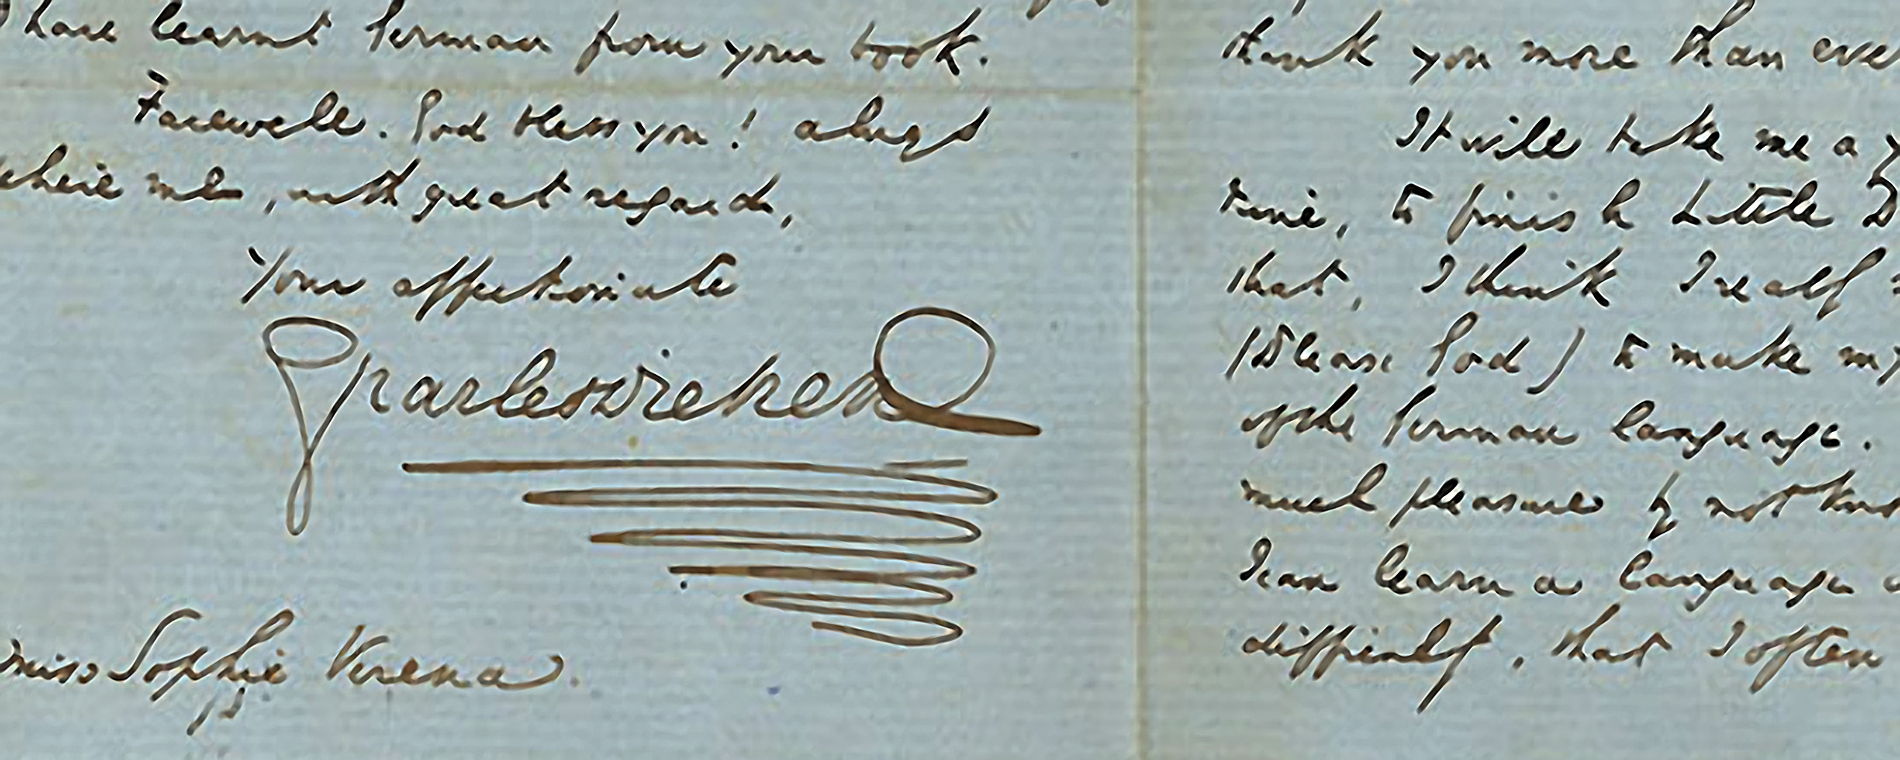 have learnt German from your book.
Farewell. God bless you! always
believe me, with great regard,
Your affectionate
Charles Dickens
Miss Sophie Verena.
thank you more than eve
It will take me a y
time, to finish Little D
that, I think I really
(Please God) to make my
of the German language.
much pleasure by not kno
I can learn a language
difficulty, that I often